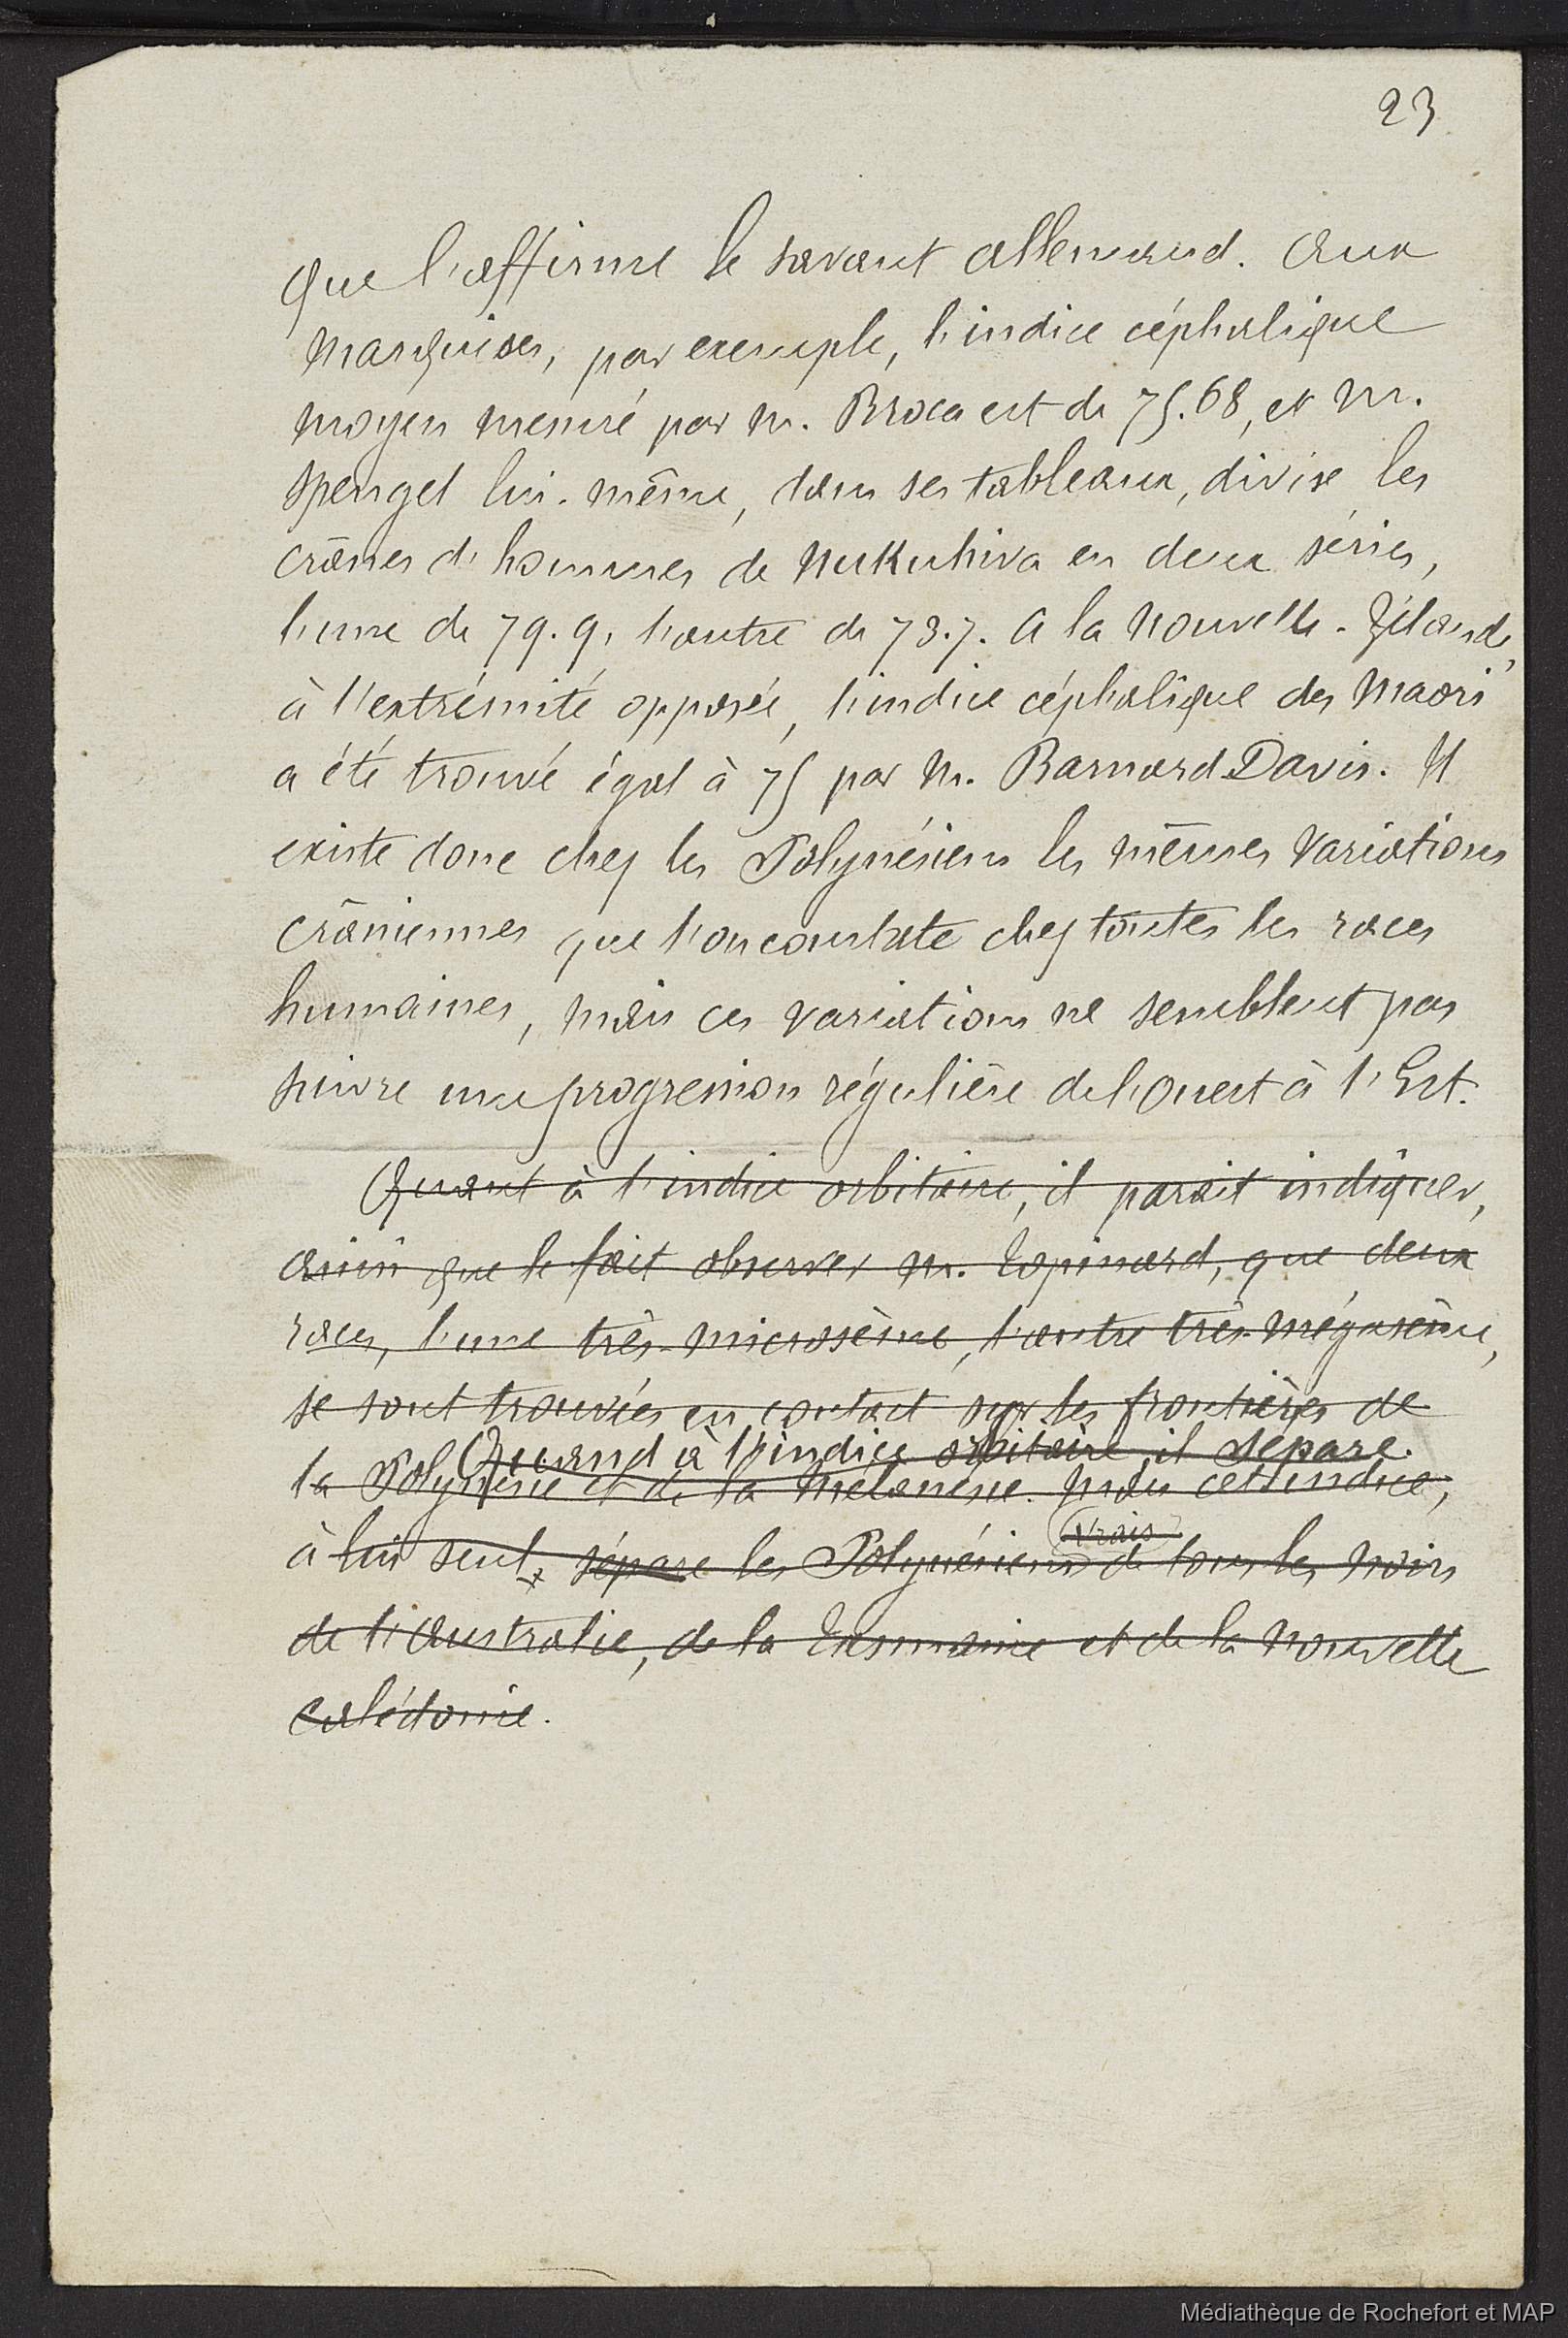 23
que l'affirme le savant allemand. Aux
Marquises, par exemple, l'indice céphalique
moyen mesuré par M. Broca est de 75.68, et M.
Spengel lui-même, dans ses tableaux, divise les
crânes d'hommes de Nukuhiva en deux séries,
l'une de 79.9, l'autre de 73.7. A la Nouvelle-Zélande,
à l'extrémité opposée, l'indice céphalique des Maori
a été trouvé égal à 75 par M. Barnard Davis. Il
existe donc chez les Polynésiens les mêmes variations
crâniennes que l'on constate chez toutes les races
humaines, mais ces variations ne semblent pas
suivre une progression régulière de l'Ouest à l'Est.
Quant à l'indice orbitaire, il parait indiquer,
ainsi que le fait observer M. Topinard, que deux
races, l'une très-microsème, l'autre très-mégasème,
se sont trouvées en contact sur les frontières de
Quand à l'indice orbitaire il sépare
la Polynésie et de la Mélanésie. Mais cet indice,
vrais
à lui seul, sépare les Polynésiens de tous les noirs
de l'Australie, de la Tasmanie et de la Nouvelle
Calédonie.
Médiathèque de Rochefort et MAP